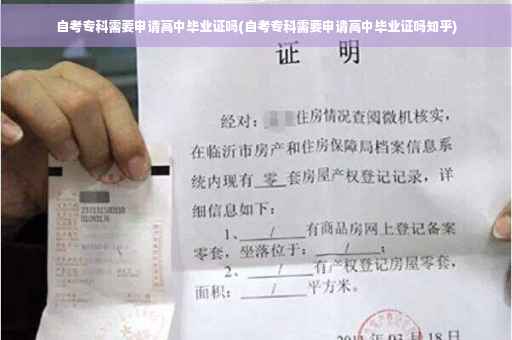 自考专科需要申请高中毕业证吗(自考专科需要申请高中毕业证吗知乎)
证 明
经对: 住房情况查阅微机核实,
在临沂市房产和住房保障局档案信息系
统内现有 零 套房屋产权登记记录, 详
细信息如下:
1、 / 有商品房网上登记备案
零套, 坐落位于: / ;
2、 / 有产权登记房屋零套,
面积: / 平方米。
03 月 18 日